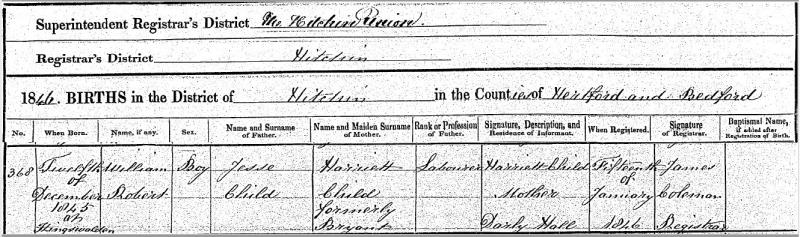 Superintendent Registrar's District The Hitchin Union.
Registrar's District Hitchin
1846. BIRTHS in the District of Hitchin in the Counties of Hertford and Bedford
No. When Born. Name, if any. Sex. Name and Surname of Father. Name and Maiden Surname of Mother. Rank or Profession of Father. Signature, Description, and Residence of Informant. When Registered. Signature of Registrar. Baptismal Name, if added after Registration of Birth.
368 Twelfth of December 1845 at Kingswalden William Robert Boy Jesse Child Harriett Child formerly Bryant Labourer Harriett Child Mother Darly Hall Fifteenth of January 1846 James Coleman Registrar